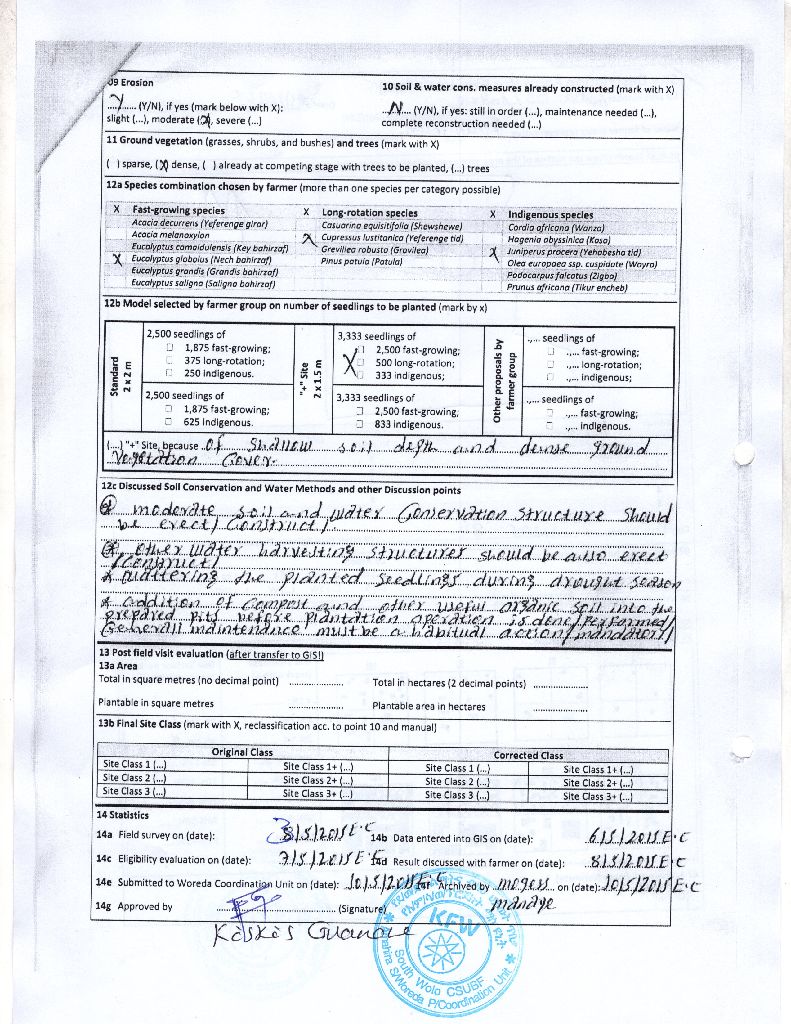 09 Erosion
Y (Y/N), if yes (mark below with X):
slight (...), moderate (X), severe (...)
10 Soil & water cons. measures already constructed (mark with X)
N (Y/N), if yes: still in order (...), maintenance needed (...),
complete reconstruction needed (...)
11 Ground vegetation (grasses, shrubs, and bushes) and trees (mark with X)
( ) sparse, (X) dense, ( ) already at competing stage with trees to be planted, (...) trees
12a Species combination chosen by farmer (more than one species per category possible)
X Fast-growing species
Acacia decurrens (Yeferenge girar)
Acacia melanoxylon
Eucalyptus camaldulensis (Key bahirzaf)
X Eucalyptus globolus (Nech bahirzaf)
Eucalyptus grandis (Grandis bahirzaf)
Eucalyptus saligna (Saligna bahirzaf)
X Long-rotation species
Casuarina equisitifolia (Shewshewe)
X Cupressus lustitanica (Yeferenge tid)
Grevillea robusta (Gravilea)
Pinus patula (Patula)
X Indigenous species
Cordia africana (Wanza)
Hagenia abyssinica (Koso)
X Juniperus procera (Yehabesha tid)
Olea europaea ssp. cuspidate (Wayra)
Podocarpus falcatus (Zigba)
Prunus africana (Tikur encheb)
12b Model selected by farmer group on number of seedlings to be planted (mark by x)
Standard
2 x 2 m
2,500 seedlings of
1,875 fast-growing;
375 long-rotation;
250 indigenous.
2,500 seedlings of
1,875 fast-growing;
625 indigenous.
"+" Site
2 x 1.5 m
3,333 seedlings of
X 2,500 fast-growing;
500 long-rotation;
333 indigenous;
3,333 seedlings of
2,500 fast-growing;
833 indigenous.
Other proposals by
farmer group
.,... seedlings of
.,... fast-growing;
.,... long-rotation;
.,... indigenous;
.,... seedlings of
.,... fast-growing;
.,... indigenous.
(...) "+" Site, because of shallow soil depth and dense ground
vegetation Cover.
12c Discussed Soil Conservation and Water Methods and other Discussion points
* moderate soil and water Conservation structure should
be erect/Construct/
* other water harvesting structures should be also erect
/construct/
* wattering the planted seedlings during drought season
* addition of compost and other useful organic soil into the
prepared pits before plantation operation is done/performed/
Generall maintenance must be a habitual action/mandatory/
13 Post field visit evaluation (after transfer to GIS!)
13a Area
Total in square metres (no decimal point) ................ Total in hectares (2 decimal points) ................
Plantable in square metres ................ Plantable area in hectares ................
13b Final Site Class (mark with X, reclassification acc. to point 10 and manual)
Original Class Corrected Class
Site Class 1 (...) Site Class 1+ (...) Site Class 1 (...) Site Class 1+ (...)
Site Class 2 (...) Site Class 2+ (...) Site Class 2 (...) Site Class 2+ (...)
Site Class 3 (...) Site Class 3+ (...) Site Class 3 (...) Site Class 3+ (...)
14 Statistics
14a Field survey on (date): 3/5/2015 E.C 14b Data entered into GIS on (date): 6/5/2015 E.C
14c Eligibility evaluation on (date): 7/5/2015 E.C 14d Result discussed with farmer on (date): 8/5/2015 E.C
14e Submitted to Woreda Coordination Unit on (date): 10/5/2015 14f Archived by mogess on (date): 10/5/2015 E.C
manaye
14g Approved by ................ (Signature)
KFW
South Wolo CSUBF
P/Coordination Unit